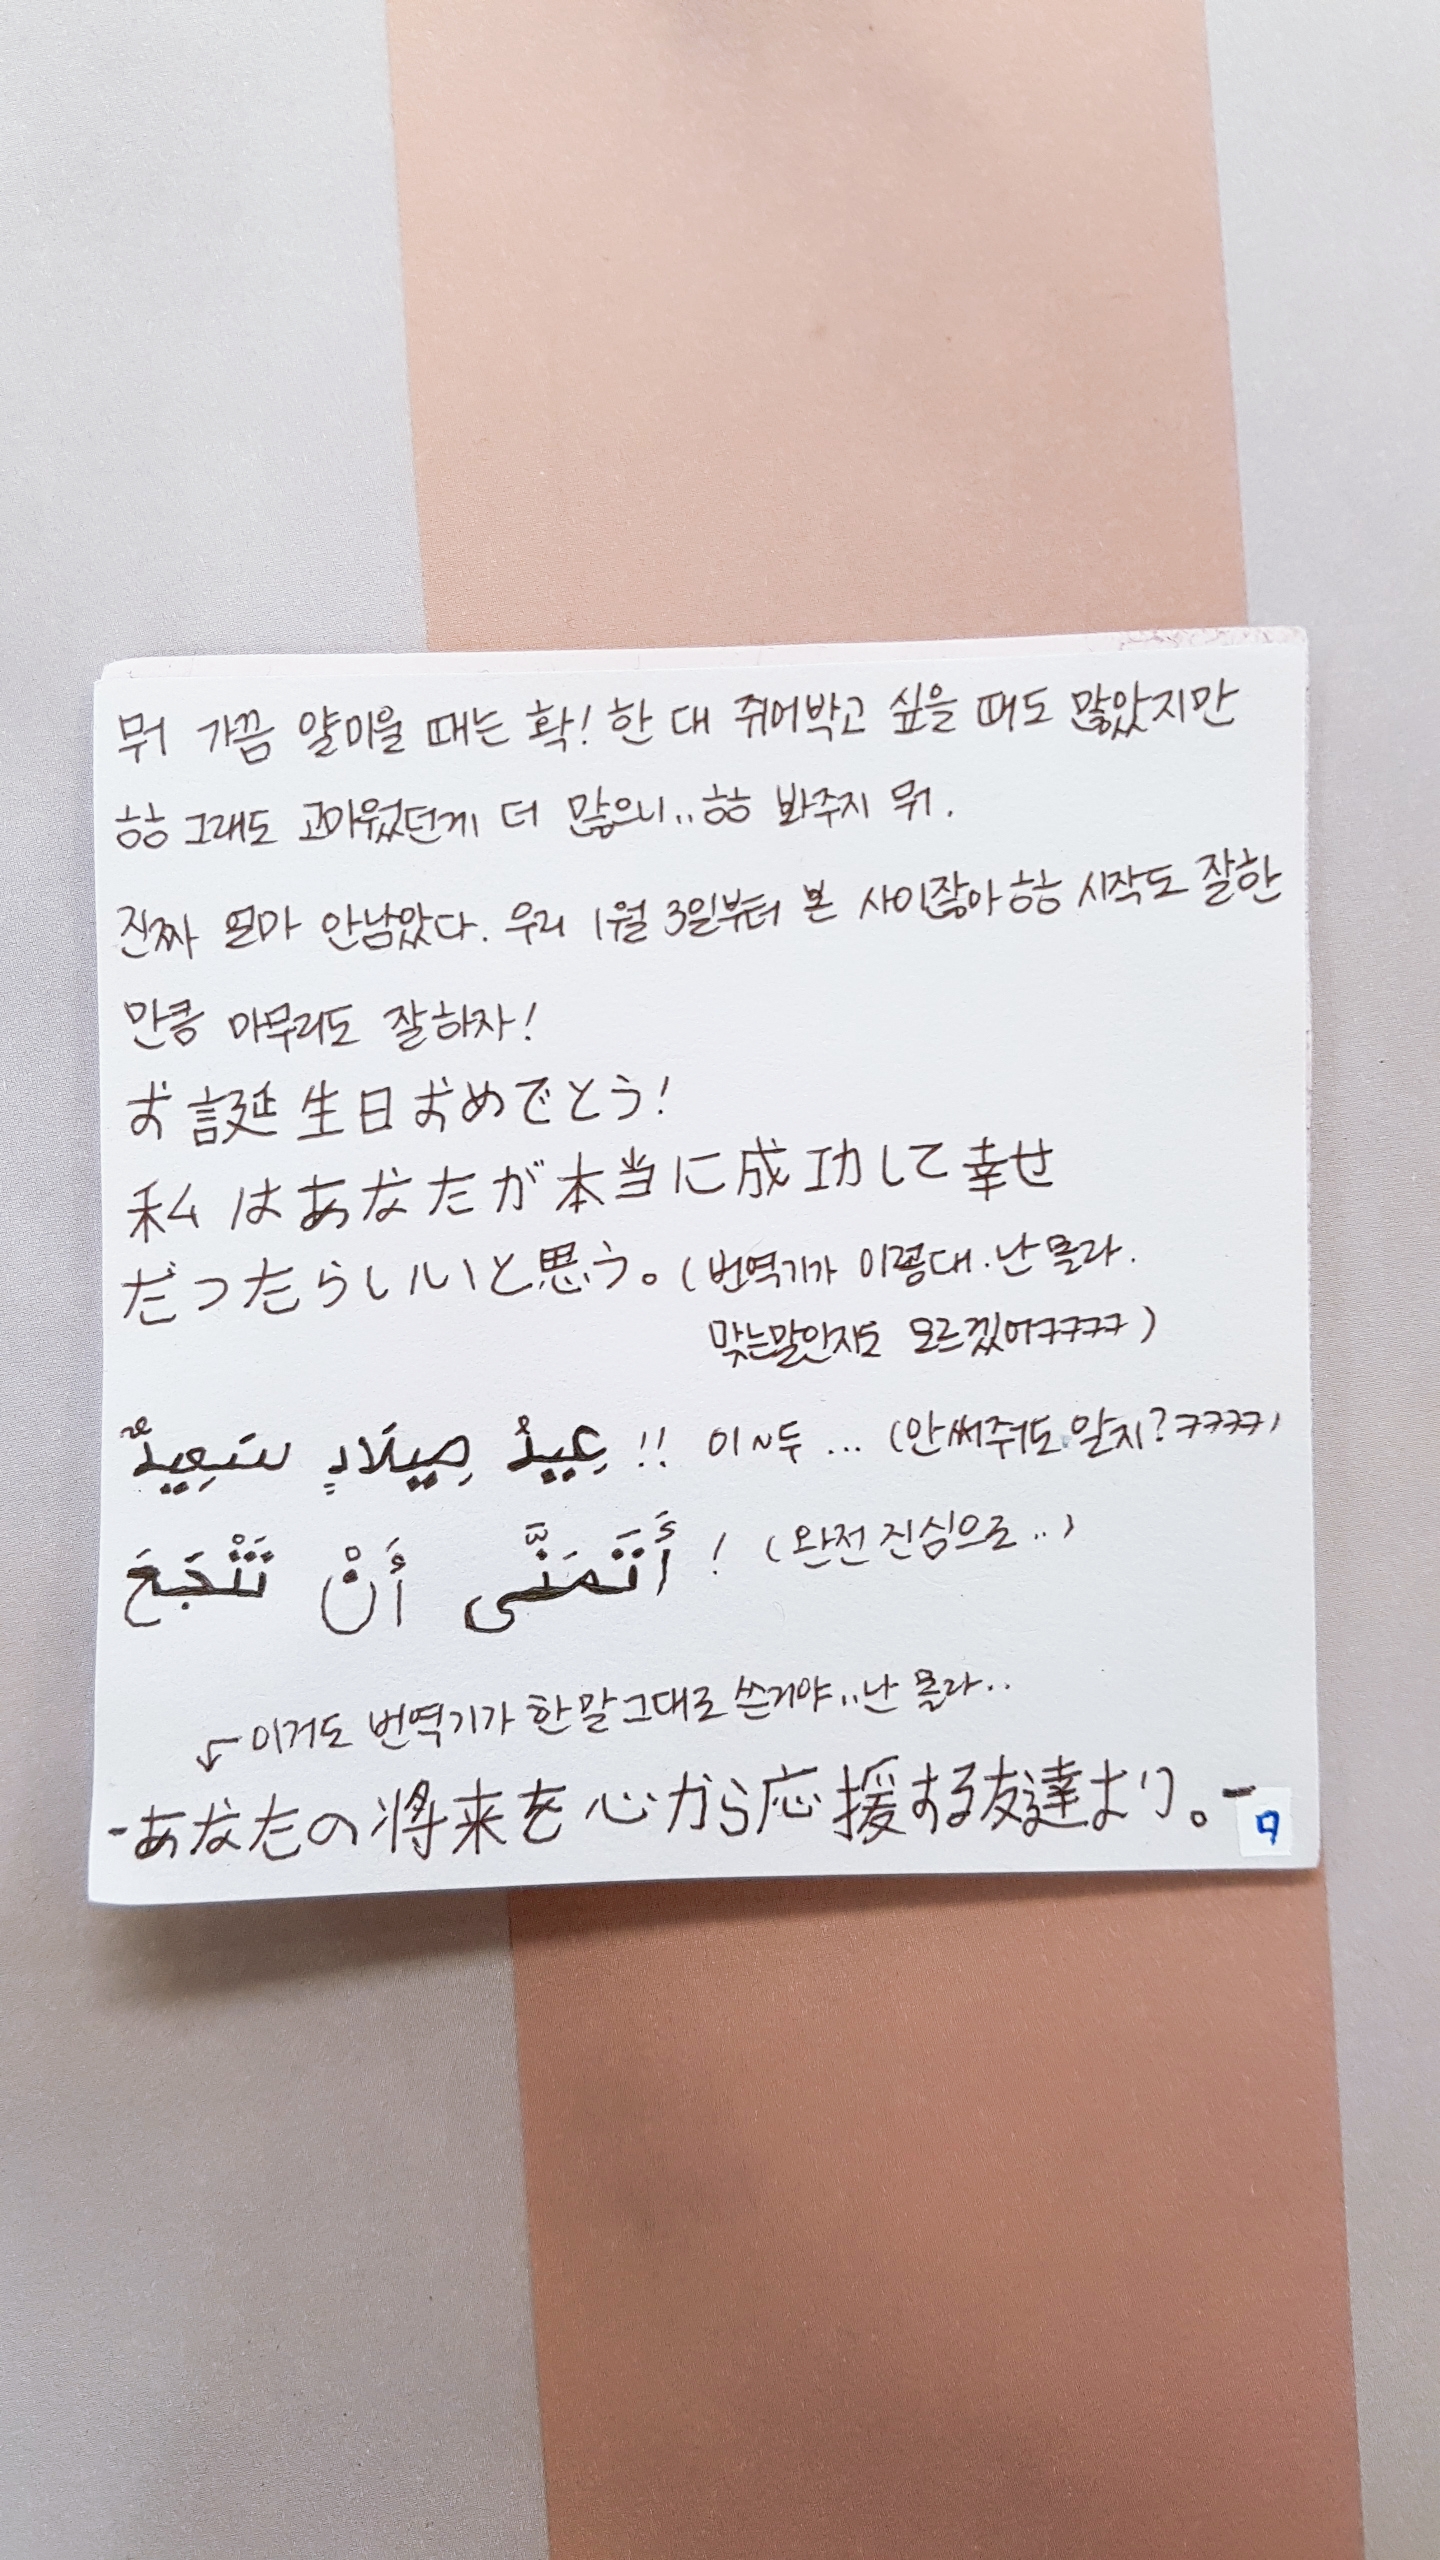 뭐 가끔 얄미울 때는 확! 한 대 쥐어박고 싶을 때도 많았지만
ㅎㅎ 그래도 고마웠던게 더 많으니..ㅎㅎ 봐주지 뭐.
진짜 얼마 안남았다. 우리 1월 3일부터 본 사이잖아ㅎㅎ 시작도 잘한
만큼 마무리도 잘하자!
お誕生日おめでとう!
私はあなたが本当に成功して幸せ
だったらいいと思う。(번역기가 이렇대. 난 몰라.
맞는말인지도 모르겠어ㅋㅋㅋㅋ)
عِيدُ مِيلَادٍ سَعِيدٌ !! 이~두 ... (안써줘도 알지?ㅋㅋㅋㅋ)
أَتَمَنَّى أَنْ تَنْجَحَ ! (완전 진심으로..)
↙이거도 번역기가 한말그대로 쓴거야..난 몰라..
-あなたの将来を心から応援する友達より。-
ㅁ